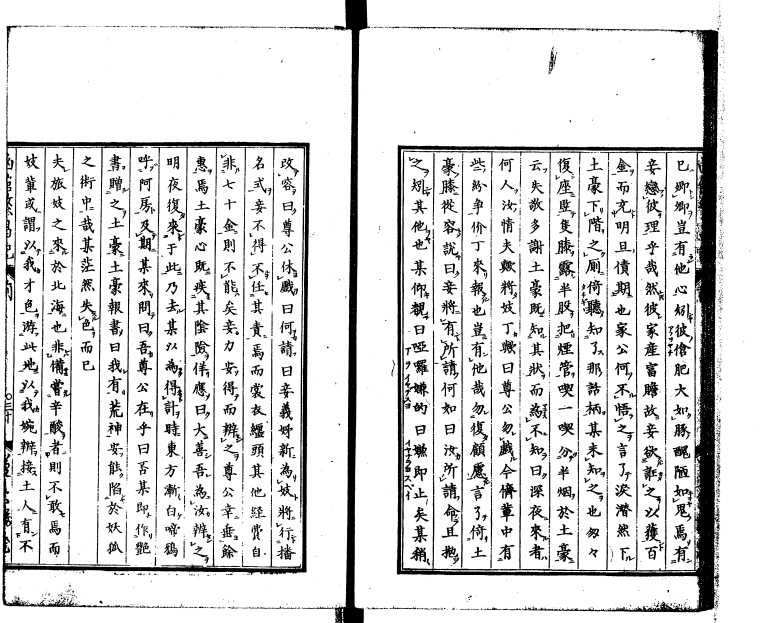 已卿卿豈有他心矧彼傖肥大如豚醜陋如鬼焉有
妾戀彼理乎哉然彼家産富贍故妾欲誑之以獲百
金而充明旦債期也家公何不悟之言了淚潸然下
土豪下階之厠倚聽知了那諸柄某未知之也匆々
復座竪隻膝露半股把煙管喫一喫分半烟於土豪
云失敬多謝土豪既知其狀而為不知曰深夜來者
何人汝情夫歟將妓丁歟曰尊公勿戯今儕輩中有
些紛争价丁來報也豈有他哉勿復顧慮言了倚土
豪膝從容說曰妾將有所請何如曰汝所請命且抛
之矧其他也某仰覩曰啞羅嫌的曰嫐即止矣某稍
アライヤダヨ
イヤナラヨスベイ
改容曰尊公休戯曰何請曰妾義妤新為妓將行搢
名式妾不得不任其責焉而裳衣纏頭其他経費自
非七十金則不能矣妾力安得而辦之尊公幸垂餘
惠焉土豪心既疾其陰險佯應曰大善吾為汝辨之
明夜復來于此乃去某以為得計時東方漸白啼鴉
呼阿房及期某來問曰吾尊公在乎曰否某即作艶
書贈之土豪土豪報書曰我有荒神安能陷於妖狐
之術中哉某茫然失色而已
夫旅妓之來於北海也非備嘗辛酸者則不敢焉而
妓輩或謂以我才色游此地以我婉辧接土人有不